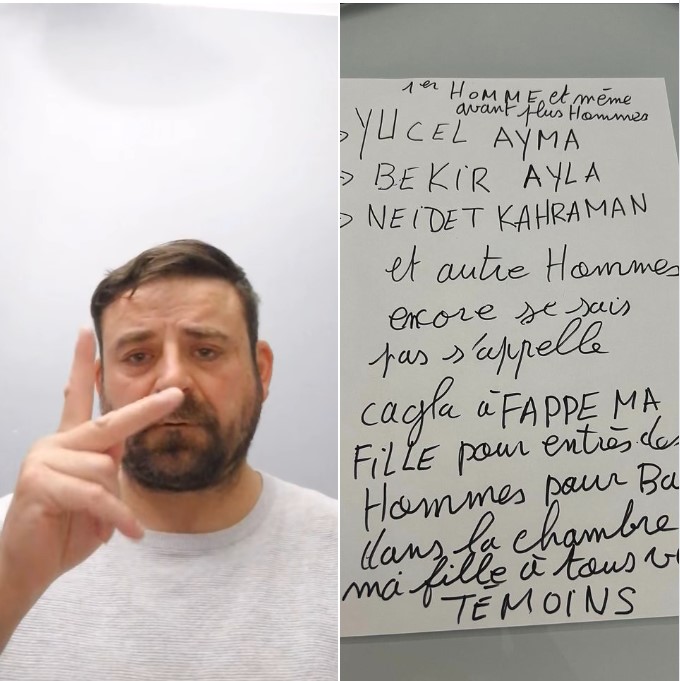 1er HOMME et même
avant plus Hommes
> YUCEL AYMA
> BEKIR AYLA
> NEIDET KAHRAMAN
et autre Hommes
encore se sais
pas s'appelle
cagla à FAPPE MA
FILLE pour entrès des
Hommes pour Ba
dans la chambre
ma fille à tous
TÉMOINS